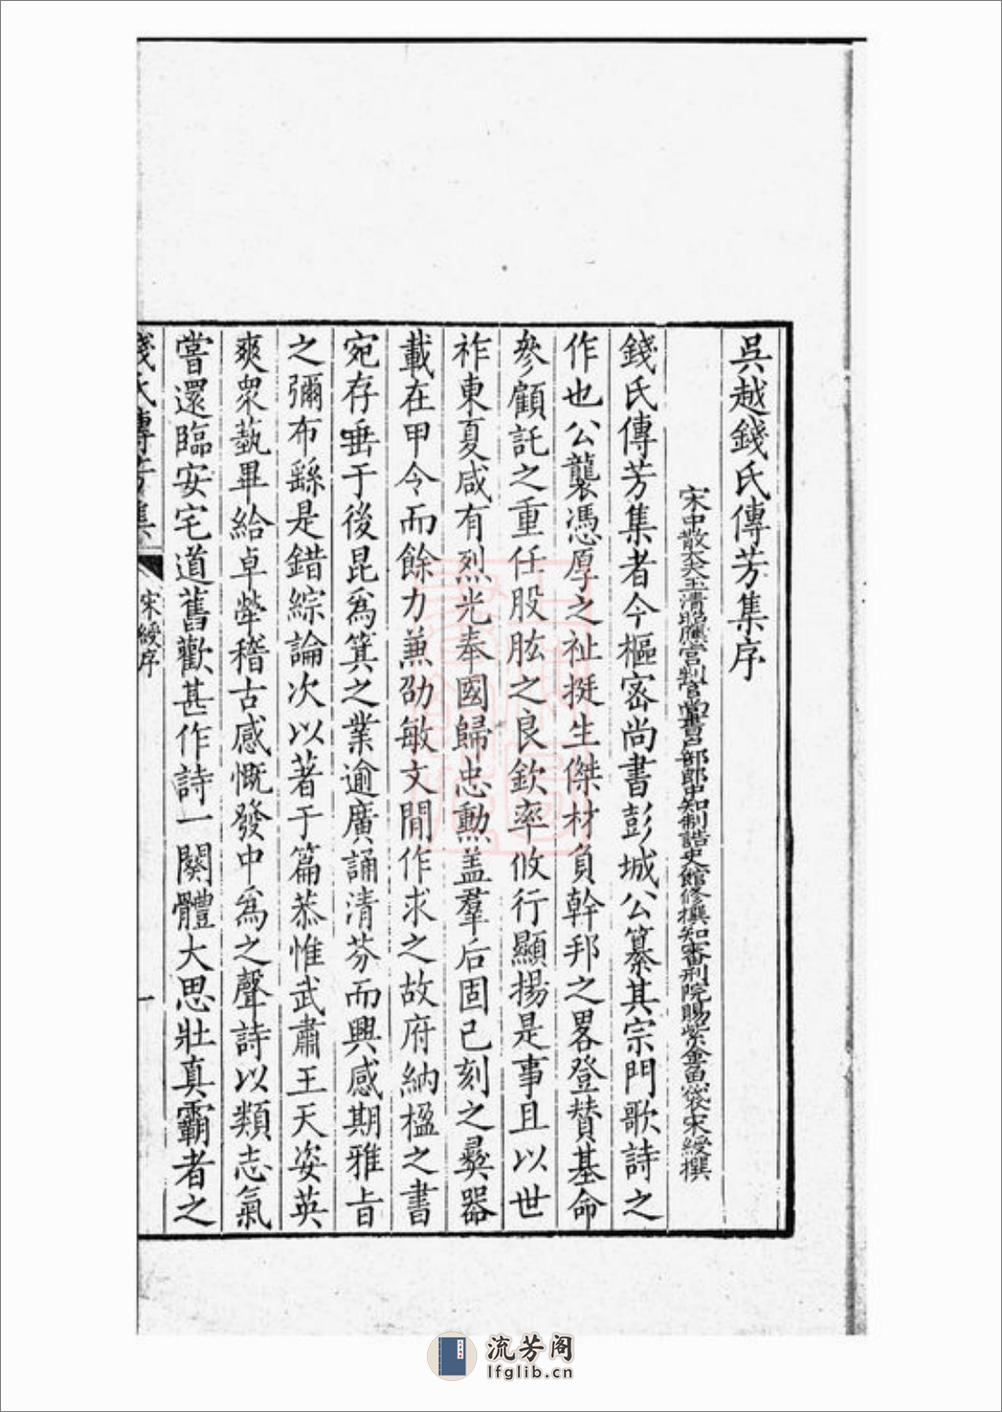 吳越錢氏傳芳集序
宋中散大夫玉清昭應宮判官尚書戶部郎中知制誥史館修撰知審刑院賜紫金魚袋宋綬撰
錢氏傳芳集者今樞密尚書彭城公纂其宗門歌詩之
作也公襲憑厚之祉挺生傑材負幹邦之畧登贊基命
參顧託之重任股肱之良欽率攸行顯揚是事且以世
祚東夏咸有烈光奉國歸忠勳盖羣后固已刻之彝器
載在甲令而餘力兼劭敏文間作求之故府納楹之書
宛存垂于後昆爲箕之業逾廣誦清芬而興感期雅旨
之彌布繇是錯綜論次以著于篇恭惟武肅王天姿英
爽衆藝畢給卓犖稽古感慨發中爲之聲詩以類志氣
嘗還臨安宅道舊歡甚作詩一闋體大思壯真霸者之
錢氏傳芳集 宋綬序 一
流芳阁
lfglib.cn